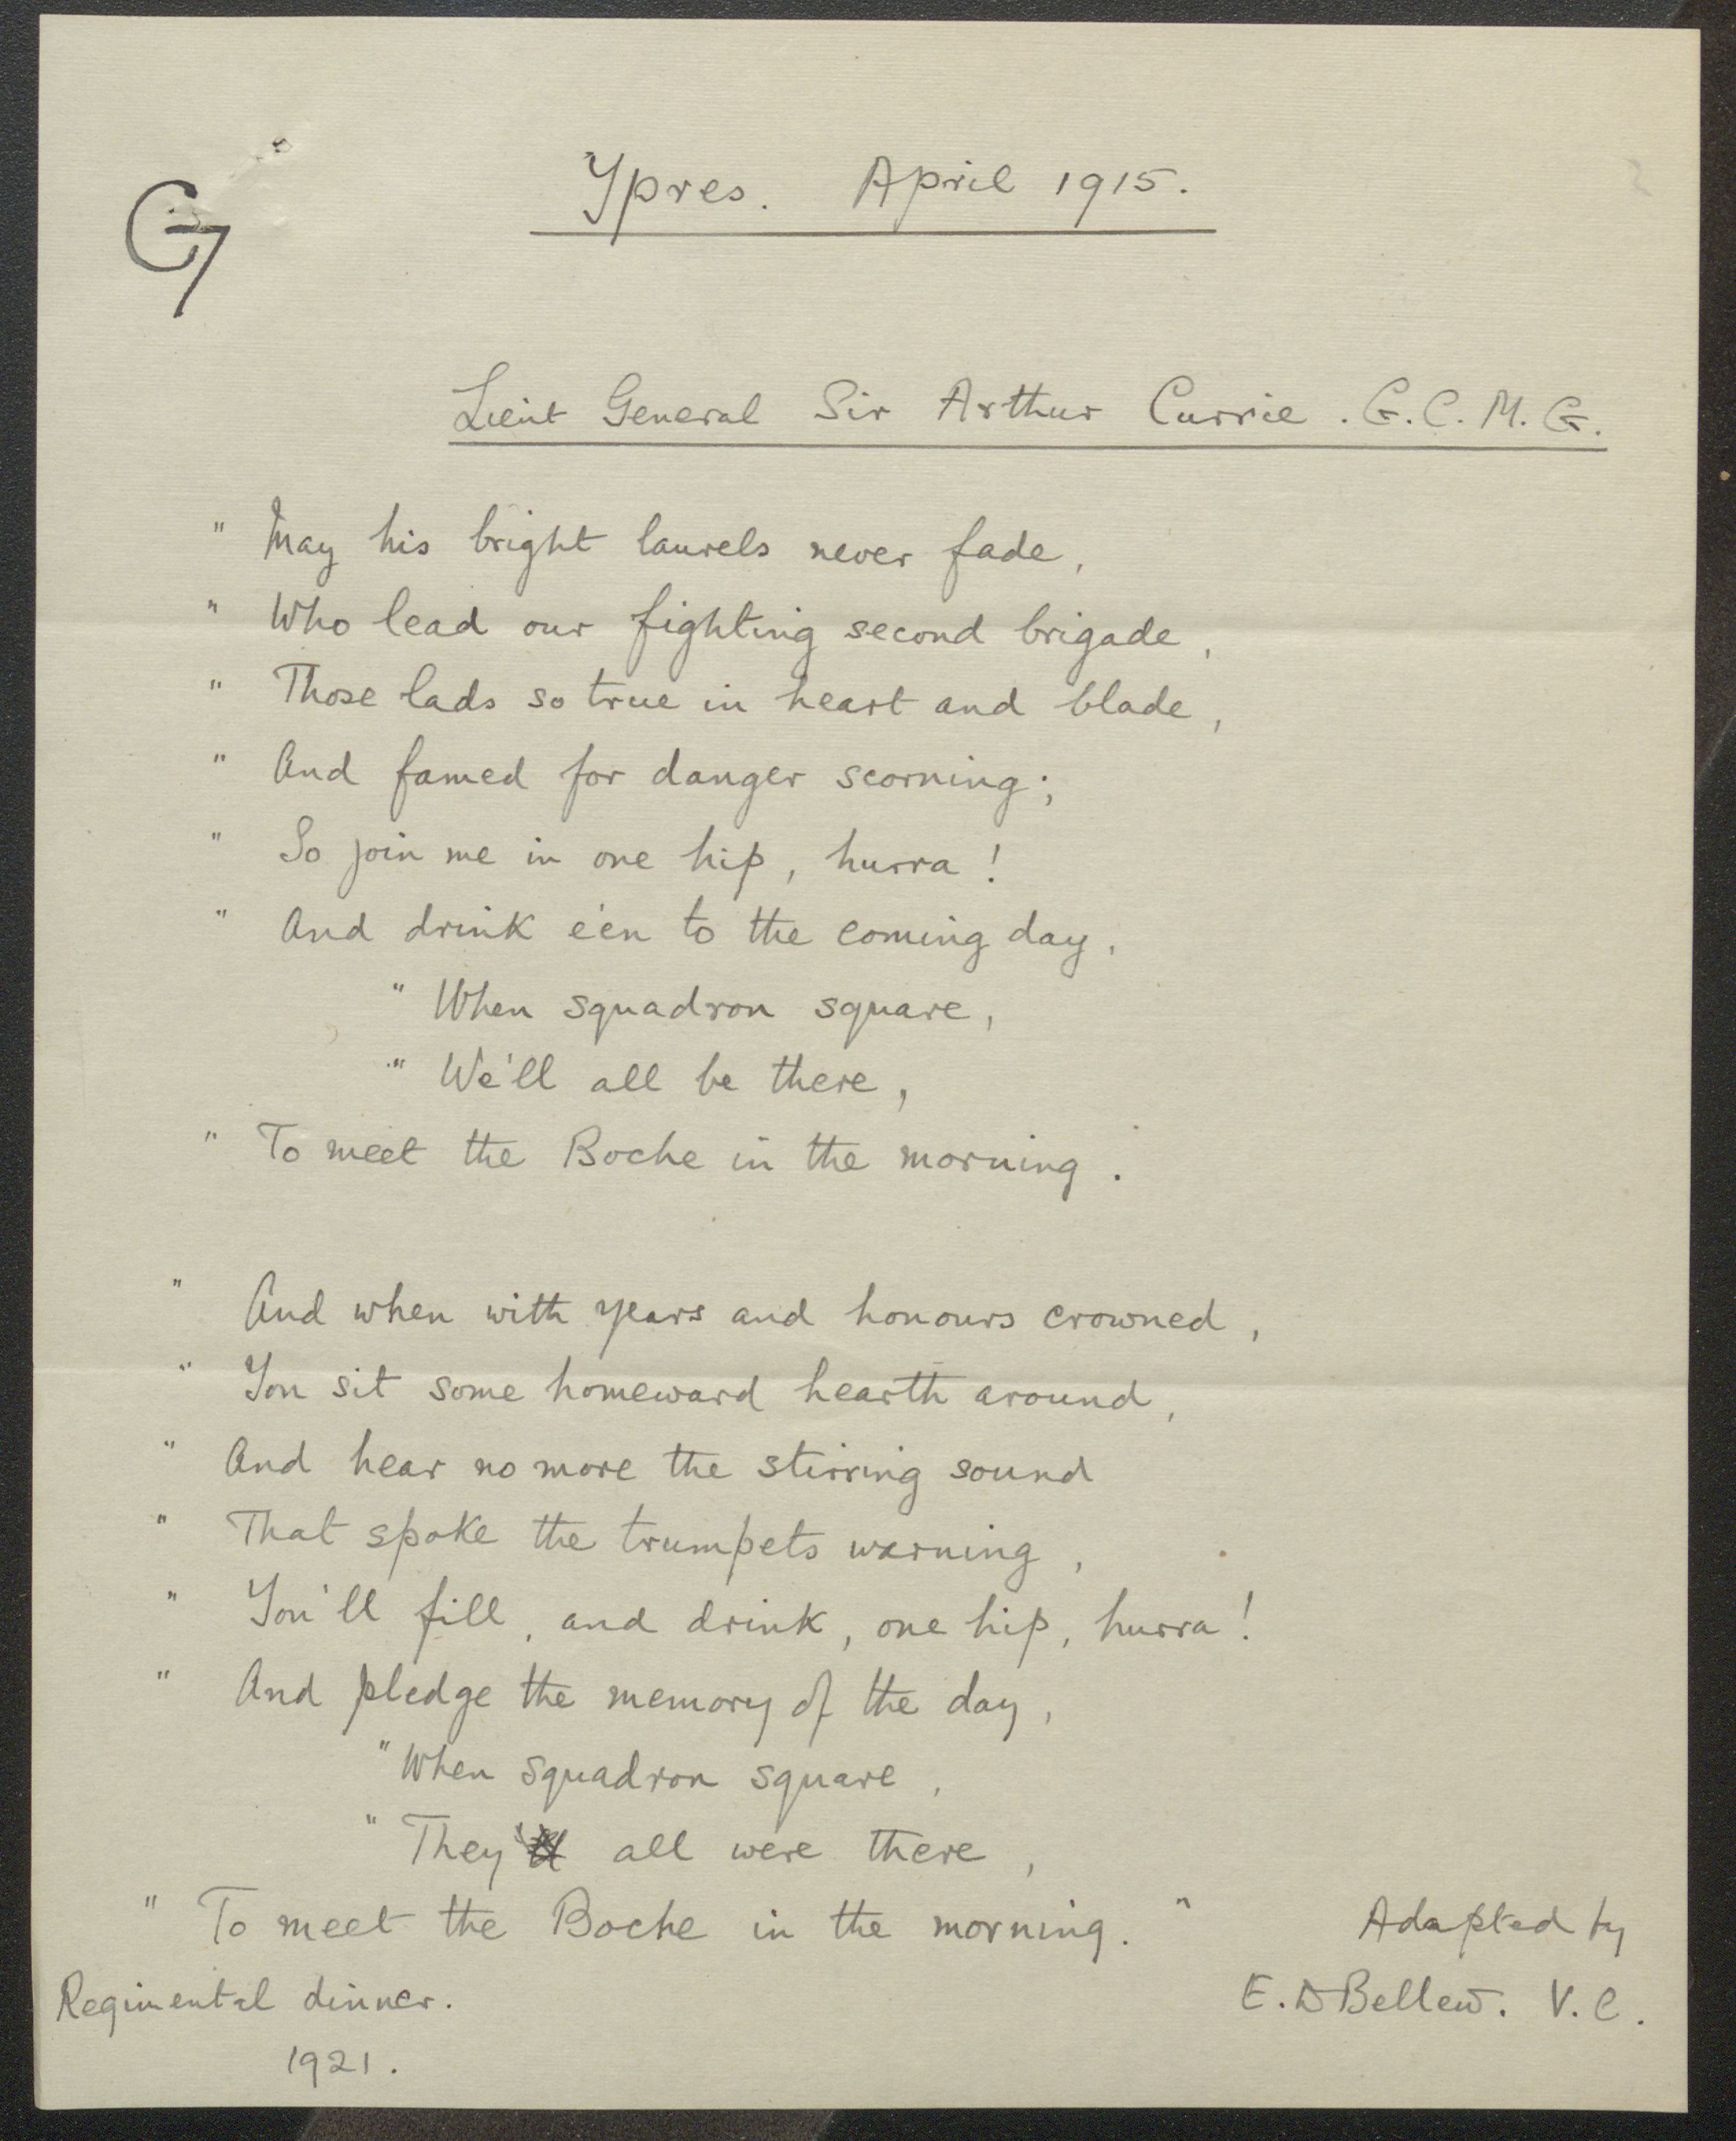 Ypres. April 1915.
G
Lieut General Sir Arthur Currie. G.C.M.G.
" May his bright laurels never fade,
" Who lead our fighting second brigade,
" Those lads so true in heart and blade,
" And famed for danger scorning;
" So join me in one hip, hurra!
" And drink e'en to the coming day,
" When squadron square,
" We'll all be there,
" To meet the Boche in the morning.
" And when with years and honours crowned,
" You sit some homeward hearth around,
" And hear no more the stirring sound
" That spoke the trumpets warning,
" You'll fill, and drink, one hip, hurra!
" And pledge the memory of the day,
" When squadron square,
" They all were there,
" To meet the Boche in the morning."
Adapted by
E.D Bellew. V.C.
Regimental dinner.
1921.